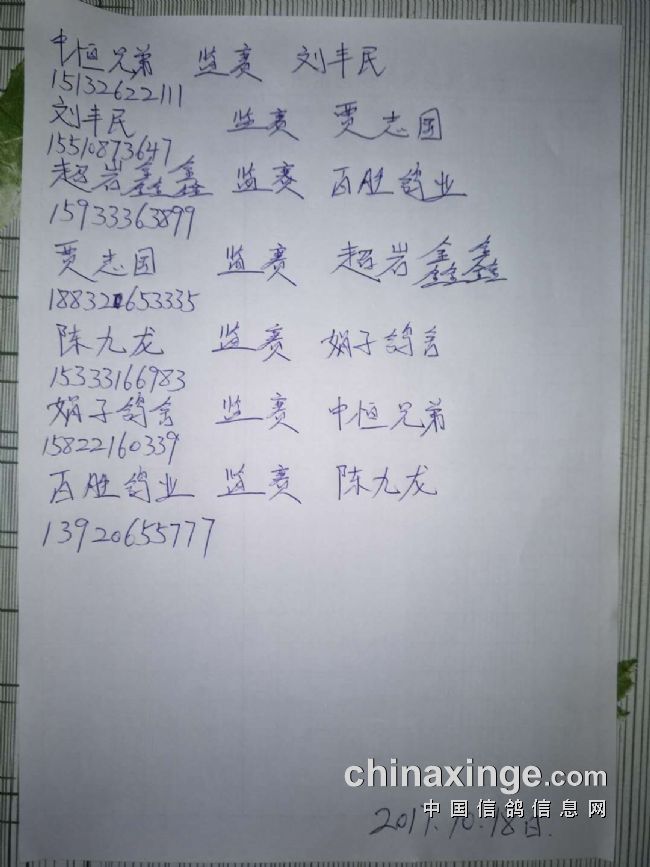 中恒兄弟 监赛 刘丰民
15132622111
刘丰民 监赛 贾志国
15510873647
超岩鑫鑫 监赛 百胜鸽业
15933363899
贾志国 监赛 超岩鑫鑫
18832653335
陈九龙 监赛 娟子鸽舍
15333166983
娟子鸽舍 监赛 中恒兄弟
15822160339
百胜鸽业 监赛 陈九龙
13920655777
chinaxinge.com
中国信鸽信息网
2017.10.18日.